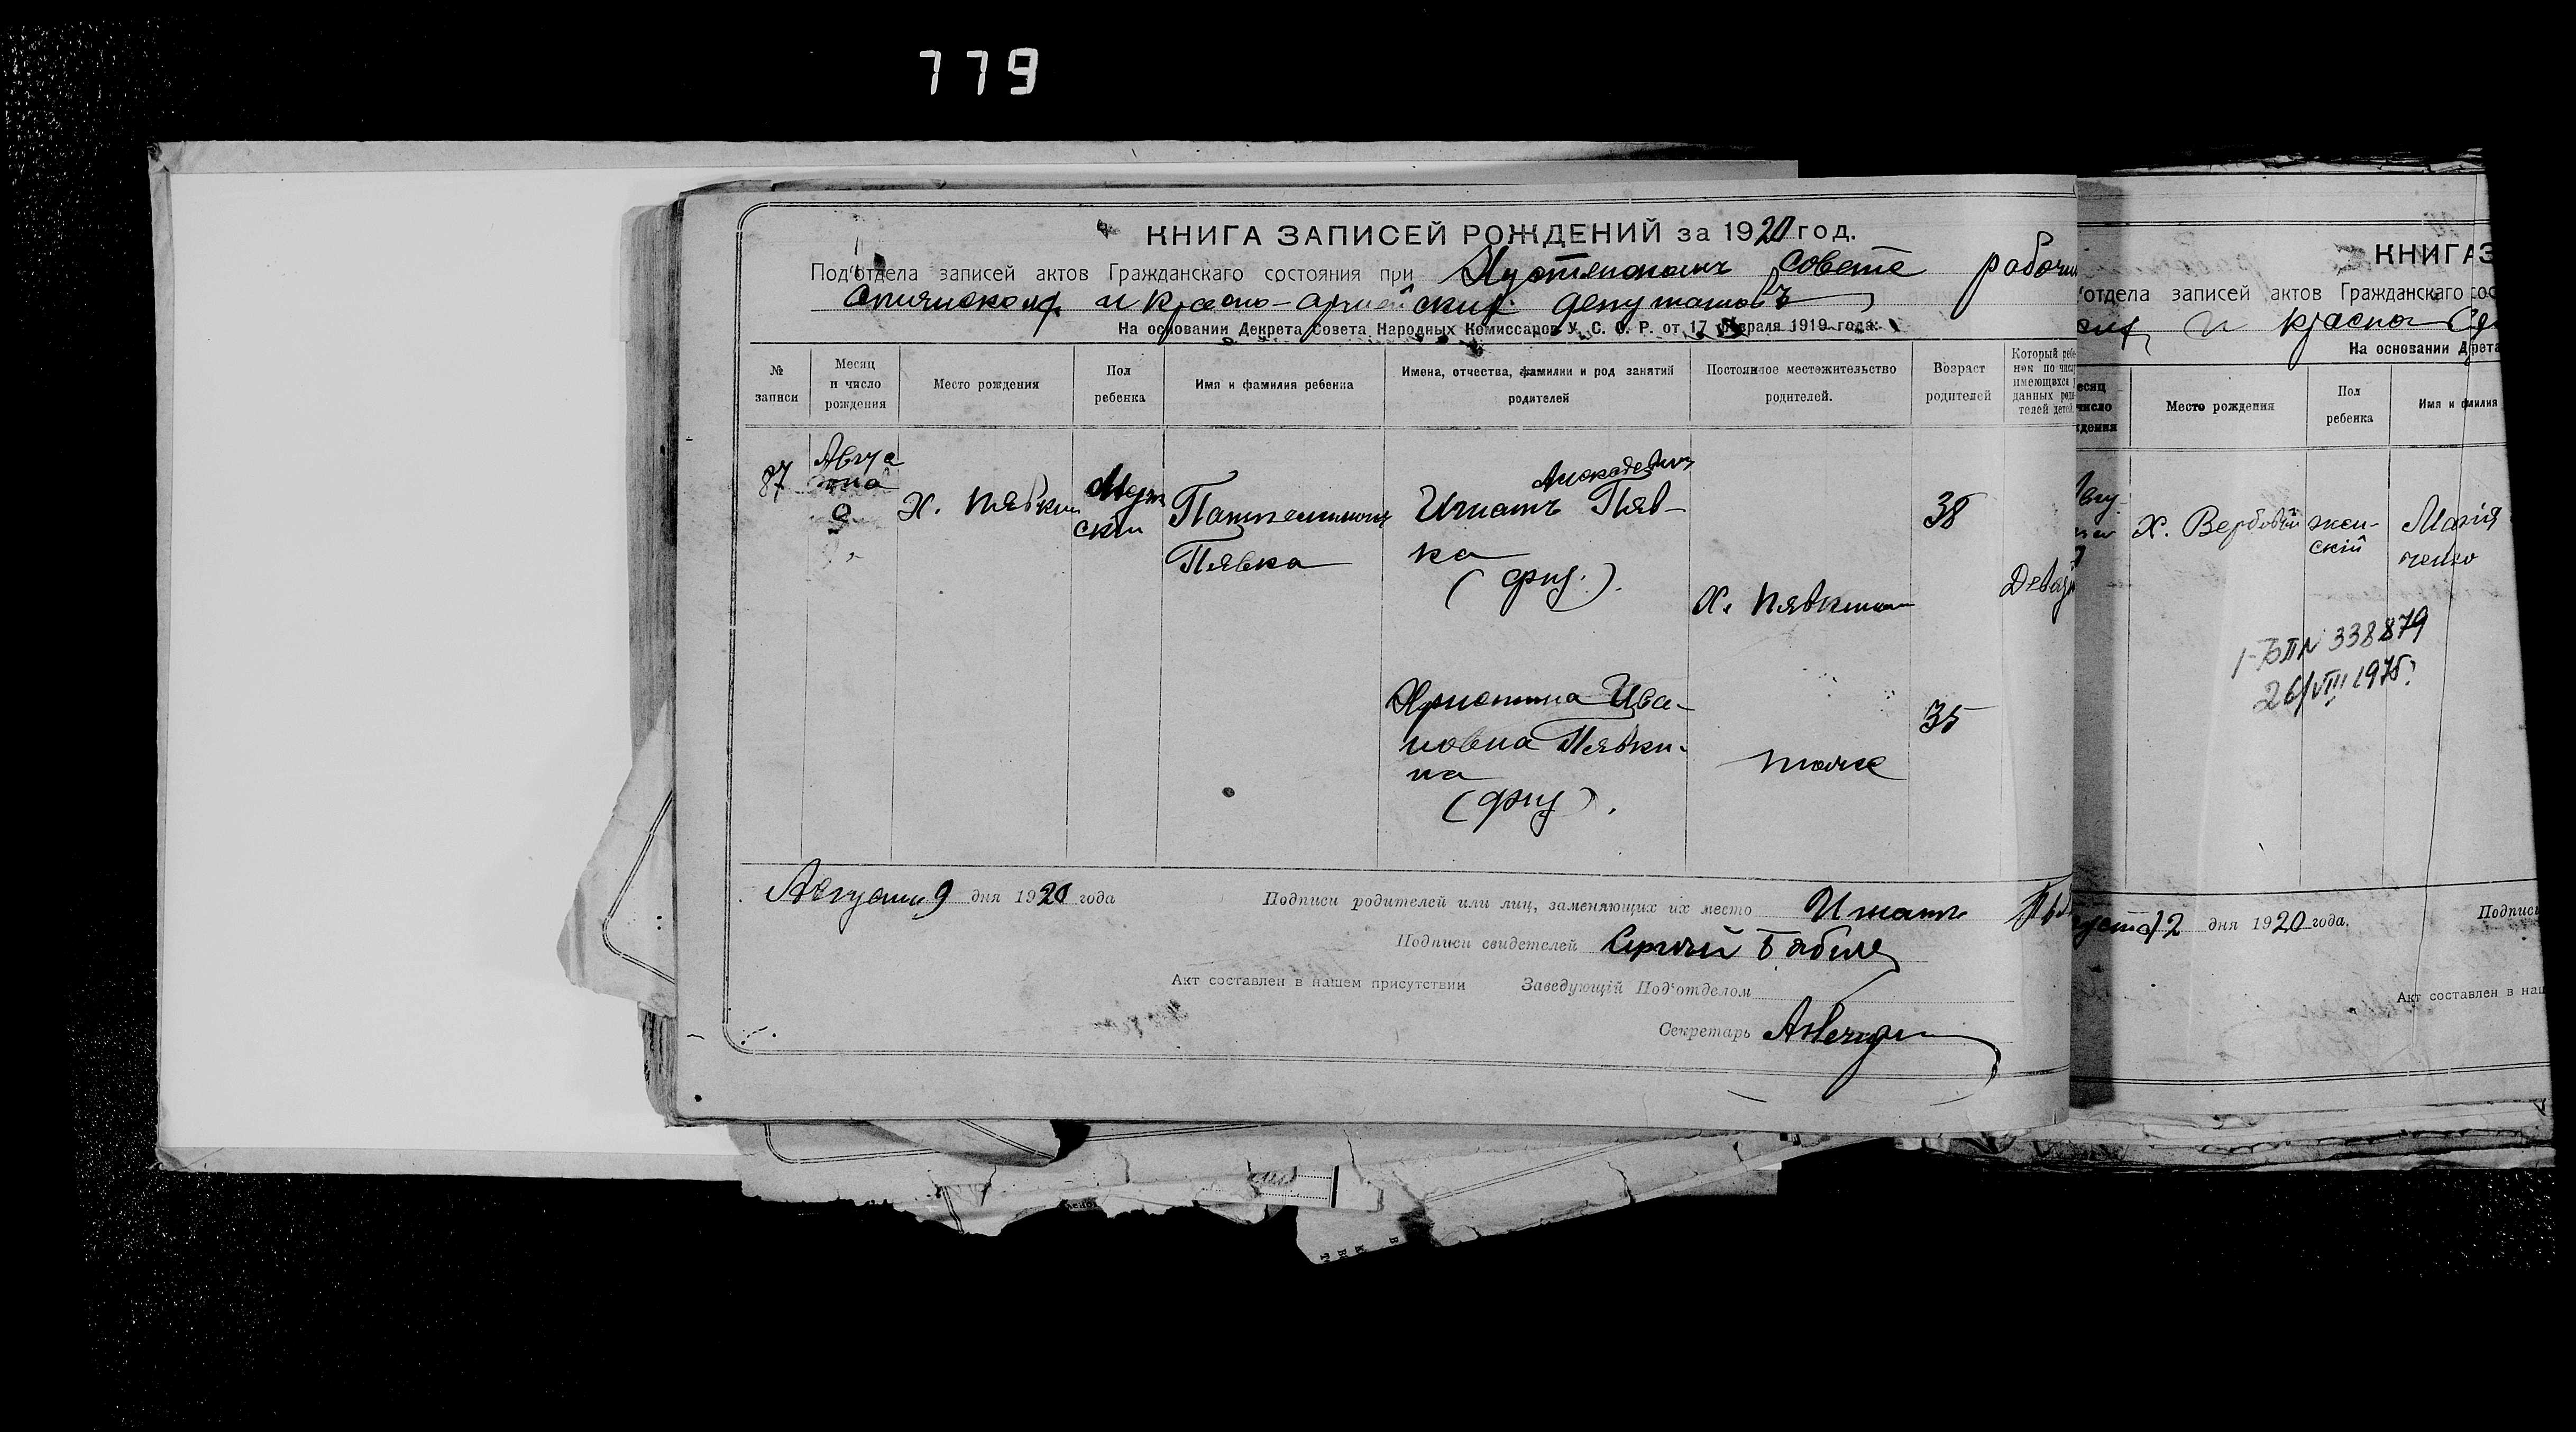 779
КНИГА ЗАПИСЕЙ РОЖДЕНИЙ за 1920 год.
Под'отдела записей актов Гражданскаго состояния при совете рабочи
и красно-армейских депутатовъ
На основании Декрета Совета Народных Комиссаров У. С. С. Р. от 17 февраля 1919 года.
№ записи
Месяц и число рождения
Место рождения
Пол ребенка
Имя и фамилия ребенка
Имена, отчества, фамилии и род занятий родителей
Постоянное местожительство родителей.
Возраст родителей
Который ребе
нок по числ
имеющихся
данных роди
телей детей
87
Авгус
та
9
Х. Пявкин
Муж
ский
Пантелимонъ
Пявка
Игнатъ Пяв-
ка
(
).
Х. Пявкин
38
Христина Ива-
новна Пявки-
на
(
).
тоже
35
Августа 9 дня 1920 года
Подписи родителей или лиц, заменяющих их место Игнатъ
Подписи свидетелей Сергѣй Бабич
Акт составлен в нашем присутствии Заведующій Под'отделом
Секретарь
КНИГА З
отдела записей актов Гражданскаго сос
и красно
На основании Д
есяц
число
ждения
Место рождения
Пол ребенка
Имя и фамилия
Х. Вербовый
жен-
скій
Марія
ченко
338879
26/VIII 1975г.
густа 12 дня 1920 года.
Подписи
Акт составлен в наш